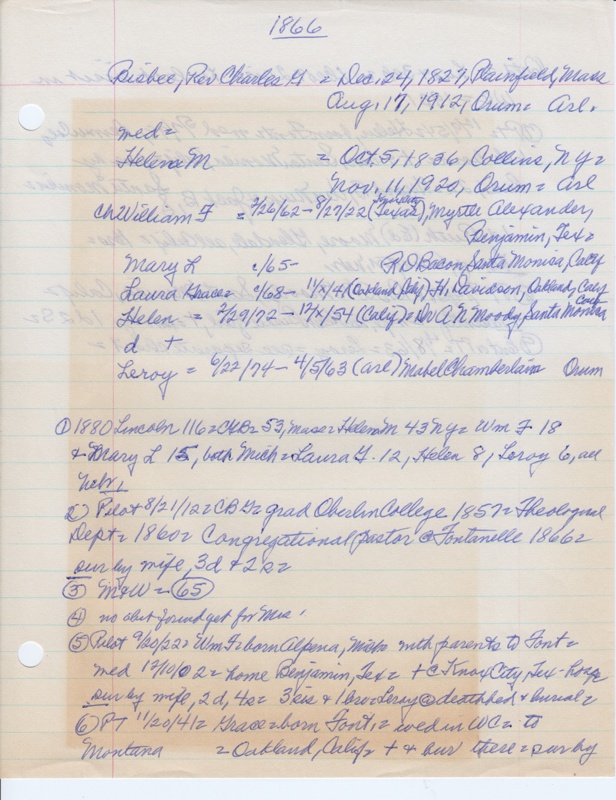 1866
Bisbee, Rev Charles G = Dec. 24, 1827, Plainfield, Mass
Aug. 17, 1912, Orum = Arl.
med =
Helena M = Oct. 5, 1836, Collins, NY =
Nov. 11, 1920, Orum = Arl
Ch William F = 3/26/62 - 8/27/22 (Texas), Myrtle Alexander,
Benjamin, Tex =
Mary L c/65 - R D Bacon, Santa Monica, Calif
Laura Grace = c/68 - 11/x/41 (Oakland, Calif) = H. Davidson, Oakland, Calif
Helen = 2/29/72 - 12/x/54 (Calif) = Dr A N Moody, Santa Monica
Calif
d +
Leroy = 6/22/74 - 4/5/63 (Arl) Mabel Chamberlain Orum
① 1880 Lincoln 116 = CGB = 53, Mass = Helena M 43 NY = Wm F 18
& Mary L 15, both Mich = Laura G. 12, Helen 8, Leroy 6, all
Neb.
2) Pilot 8/21/12 = CBG = grad Oberlin College 1857 = Theological
Dept = 1860 = Congregational pastor @ Fontanelle 1866 =
sur by wife, 3d + 2s =
③ M & W = 65
④ no obit found yet for Mrs.
⑤ Pilot 9/20/22 = Wm F = born Alpena, Mich with parents to Font =
med 12/10/02 = home Benjamin, Tex = + @ Knox City, Tex - hosp
sur by wife, 2d, 4s = 3 sis & 1 bro = Leroy @ deathbed & burial =
⑥ PT 11/20/41 = Grace = born Font. = wed in WC = to
Montana = Oakland, Calif = + & bur there = sur by